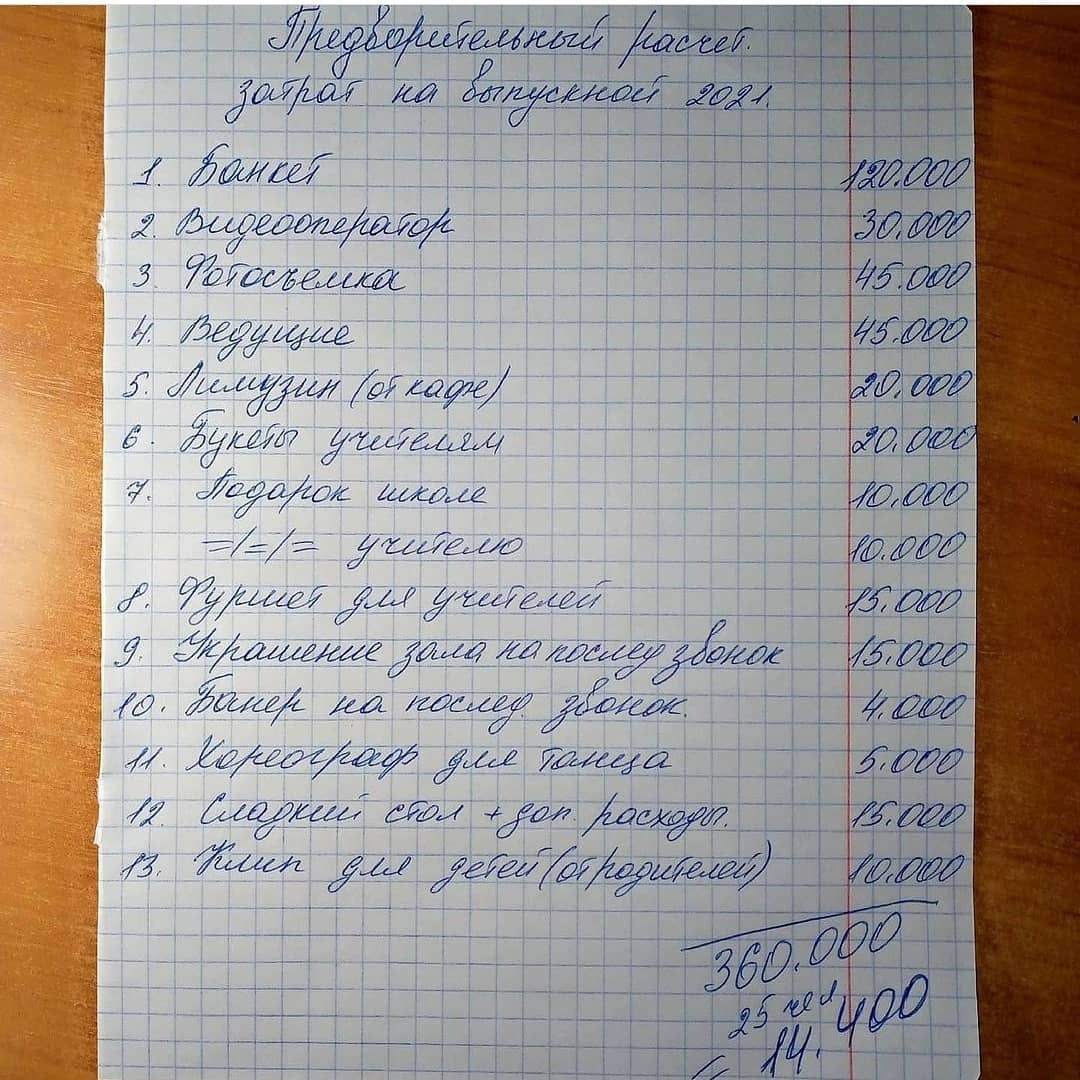 Предворительный расчет.
затрат на выпускной 2021.
1. Банкет 120.000
2. Видеооператор 30.000
3. Фотосъемка 45.000
4. Ведущие 45.000
5. Лимузин (от кафе) 20.000
6. Букеты учителям 20.000
7. Подарок школе 10.000
=/=/= учителю 10.000
8. Фуршет для учителей 15.000
9. Украшение зала на послед звонок 15.000
10. Банер на послед. звонок. 4.000
11. Хореограф для танца 5.000
12. Сладкий стол + доп. расходы. 15.000
13. Клип для детей (от родителей) 10.000
360.000
25 чел
14.400